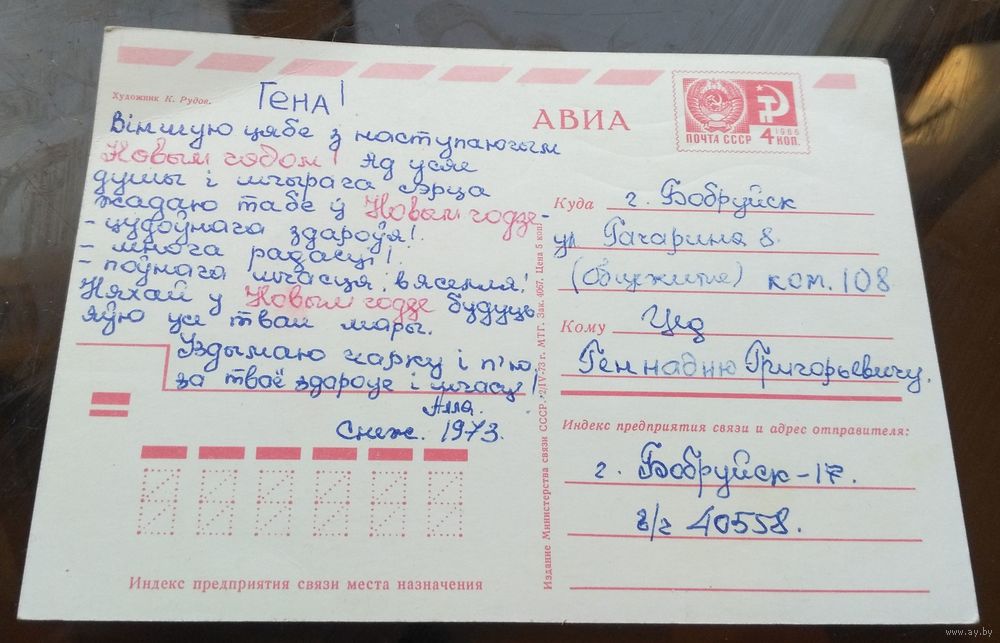 Художник К. Рудов.
Гена!
Віншую цябе з наступаючым
Новым годом! Ад усяе
душы і шчырага сэрца
жадаю табе ў Новым годзе-
- цудоўнага здароўя!
- многа радасці!
- поўнага шчасця, вяселля!
Няхай у Новым годзе будуць
яўю усе твае мары.
Уздымаю чарку і п'ю
за тваё здароўе і шчасце!
Алла.
Снеж. 1973.
Индекс предприятия связи места назначения
Издание Министерства связи СССР. 2/IV-73 г. МТГ. Зак. 4067. Цена 5 коп.
АВИА
1966
ПОЧТА СССР 4 КОП.
Куда г. Бобруйск
ул Гагарина 8.
(Общежитие) ком. 108
Кому
Геннадию Григорьевичу.
Индекс предприятия связи и адрес отправителя:
г. Бобруйск-17.
в/ч 40558.
www.ay.by